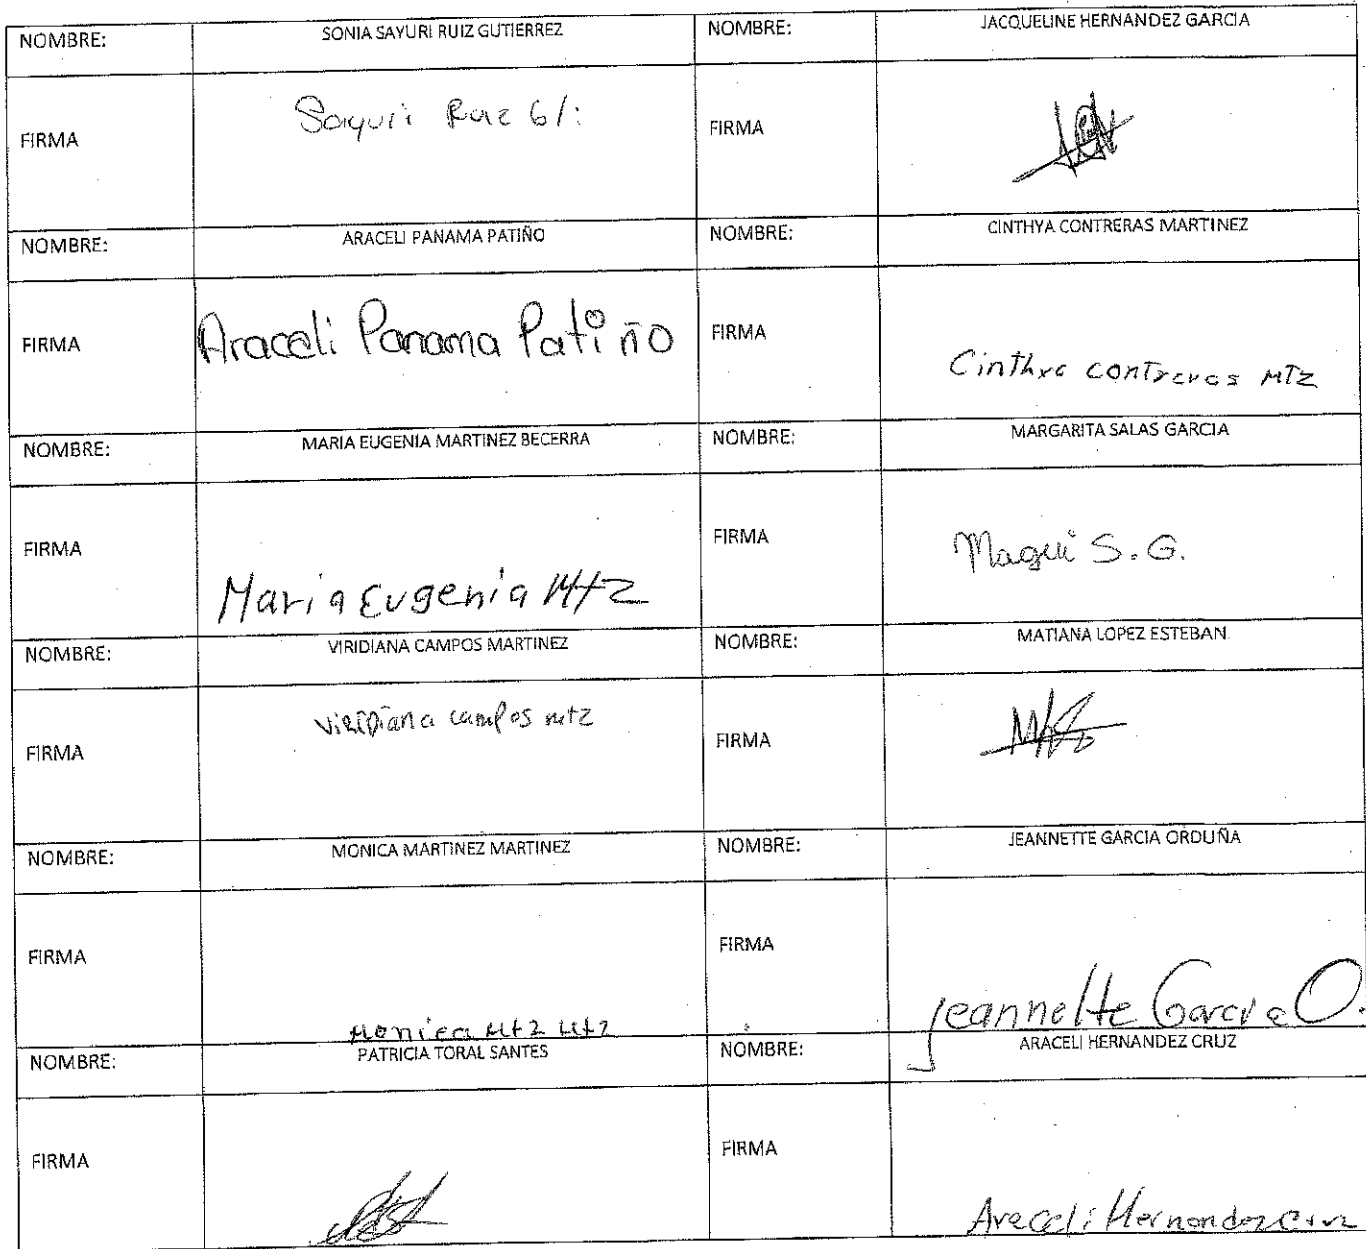 NOMBRE: SONIA SAYURI RUIZ GUTIERREZ NOMBRE: JACQUELINE HERNANDEZ GARCIA
FIRMA Sayuri Ruiz FIRMA
NOMBRE: ARACELI PANAMA PATIÑO NOMBRE: CINTHYA CONTRERAS MARTINEZ
FIRMA Araceli Panama Patiño FIRMA Cinthya contreras MTZ
NOMBRE: MARIA EUGENIA MARTINEZ BECERRA NOMBRE: MARGARITA SALAS GARCIA
FIRMA Maria Eugenia Mtz FIRMA Magui S. G.
NOMBRE: VIRIDIANA CAMPOS MARTINEZ NOMBRE: MATIANA LOPEZ ESTEBAN
FIRMA Viridiana campos mtz FIRMA
NOMBRE: MONICA MARTINEZ MARTINEZ NOMBRE: JEANNETTE GARCIA ORDUÑA
FIRMA Monica Mtz Mtz FIRMA Jeannette Garcia O.
NOMBRE: PATRICIA TORAL SANTES NOMBRE: ARACELI HERNANDEZ CRUZ
FIRMA FIRMA Araceli Hernandez Cruz